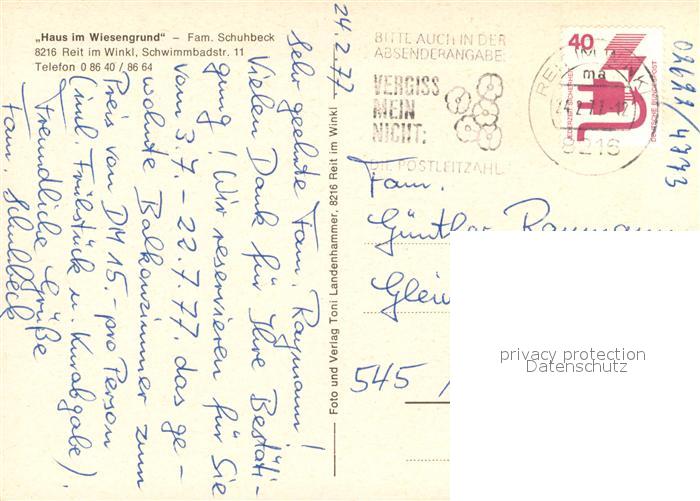 „Haus im Wiesengrund“ – Fam. Schuhbeck
8216 Reit im Winkl, Schwimmbadstr. 11
Telefon 0 86 40 / 86 64
24.2.77
Sehr geehrte Fam. Raymann!
Vielen Dank für Ihre Bestäti-
gung! Wir reservieren für Sie
vom 3.7. – 22.7.77. das ge-
wohnte Balkonzimmer zum
Preis von DM 15.- pro Person
(inkl. Frühstück u. Kurabgabe).
Freundliche Grüße
Fam. Schuhbeck
Foto und Verlag Toni Landenhammer, 8216 Reit im Winkl
BITTE AUCH IN DER
ABSENDERANGABE:
VERGISS
MEIN
NICHT:
DIE POSTLEITZAHL
REIT IM WINKL
ma
24.2.77-12
8216
40
JEDERZEIT SICHERHEIT
DEUTSCHE BUNDESPOST
Fam.
Günther Raymann
545
privacy protection
Datenschutz